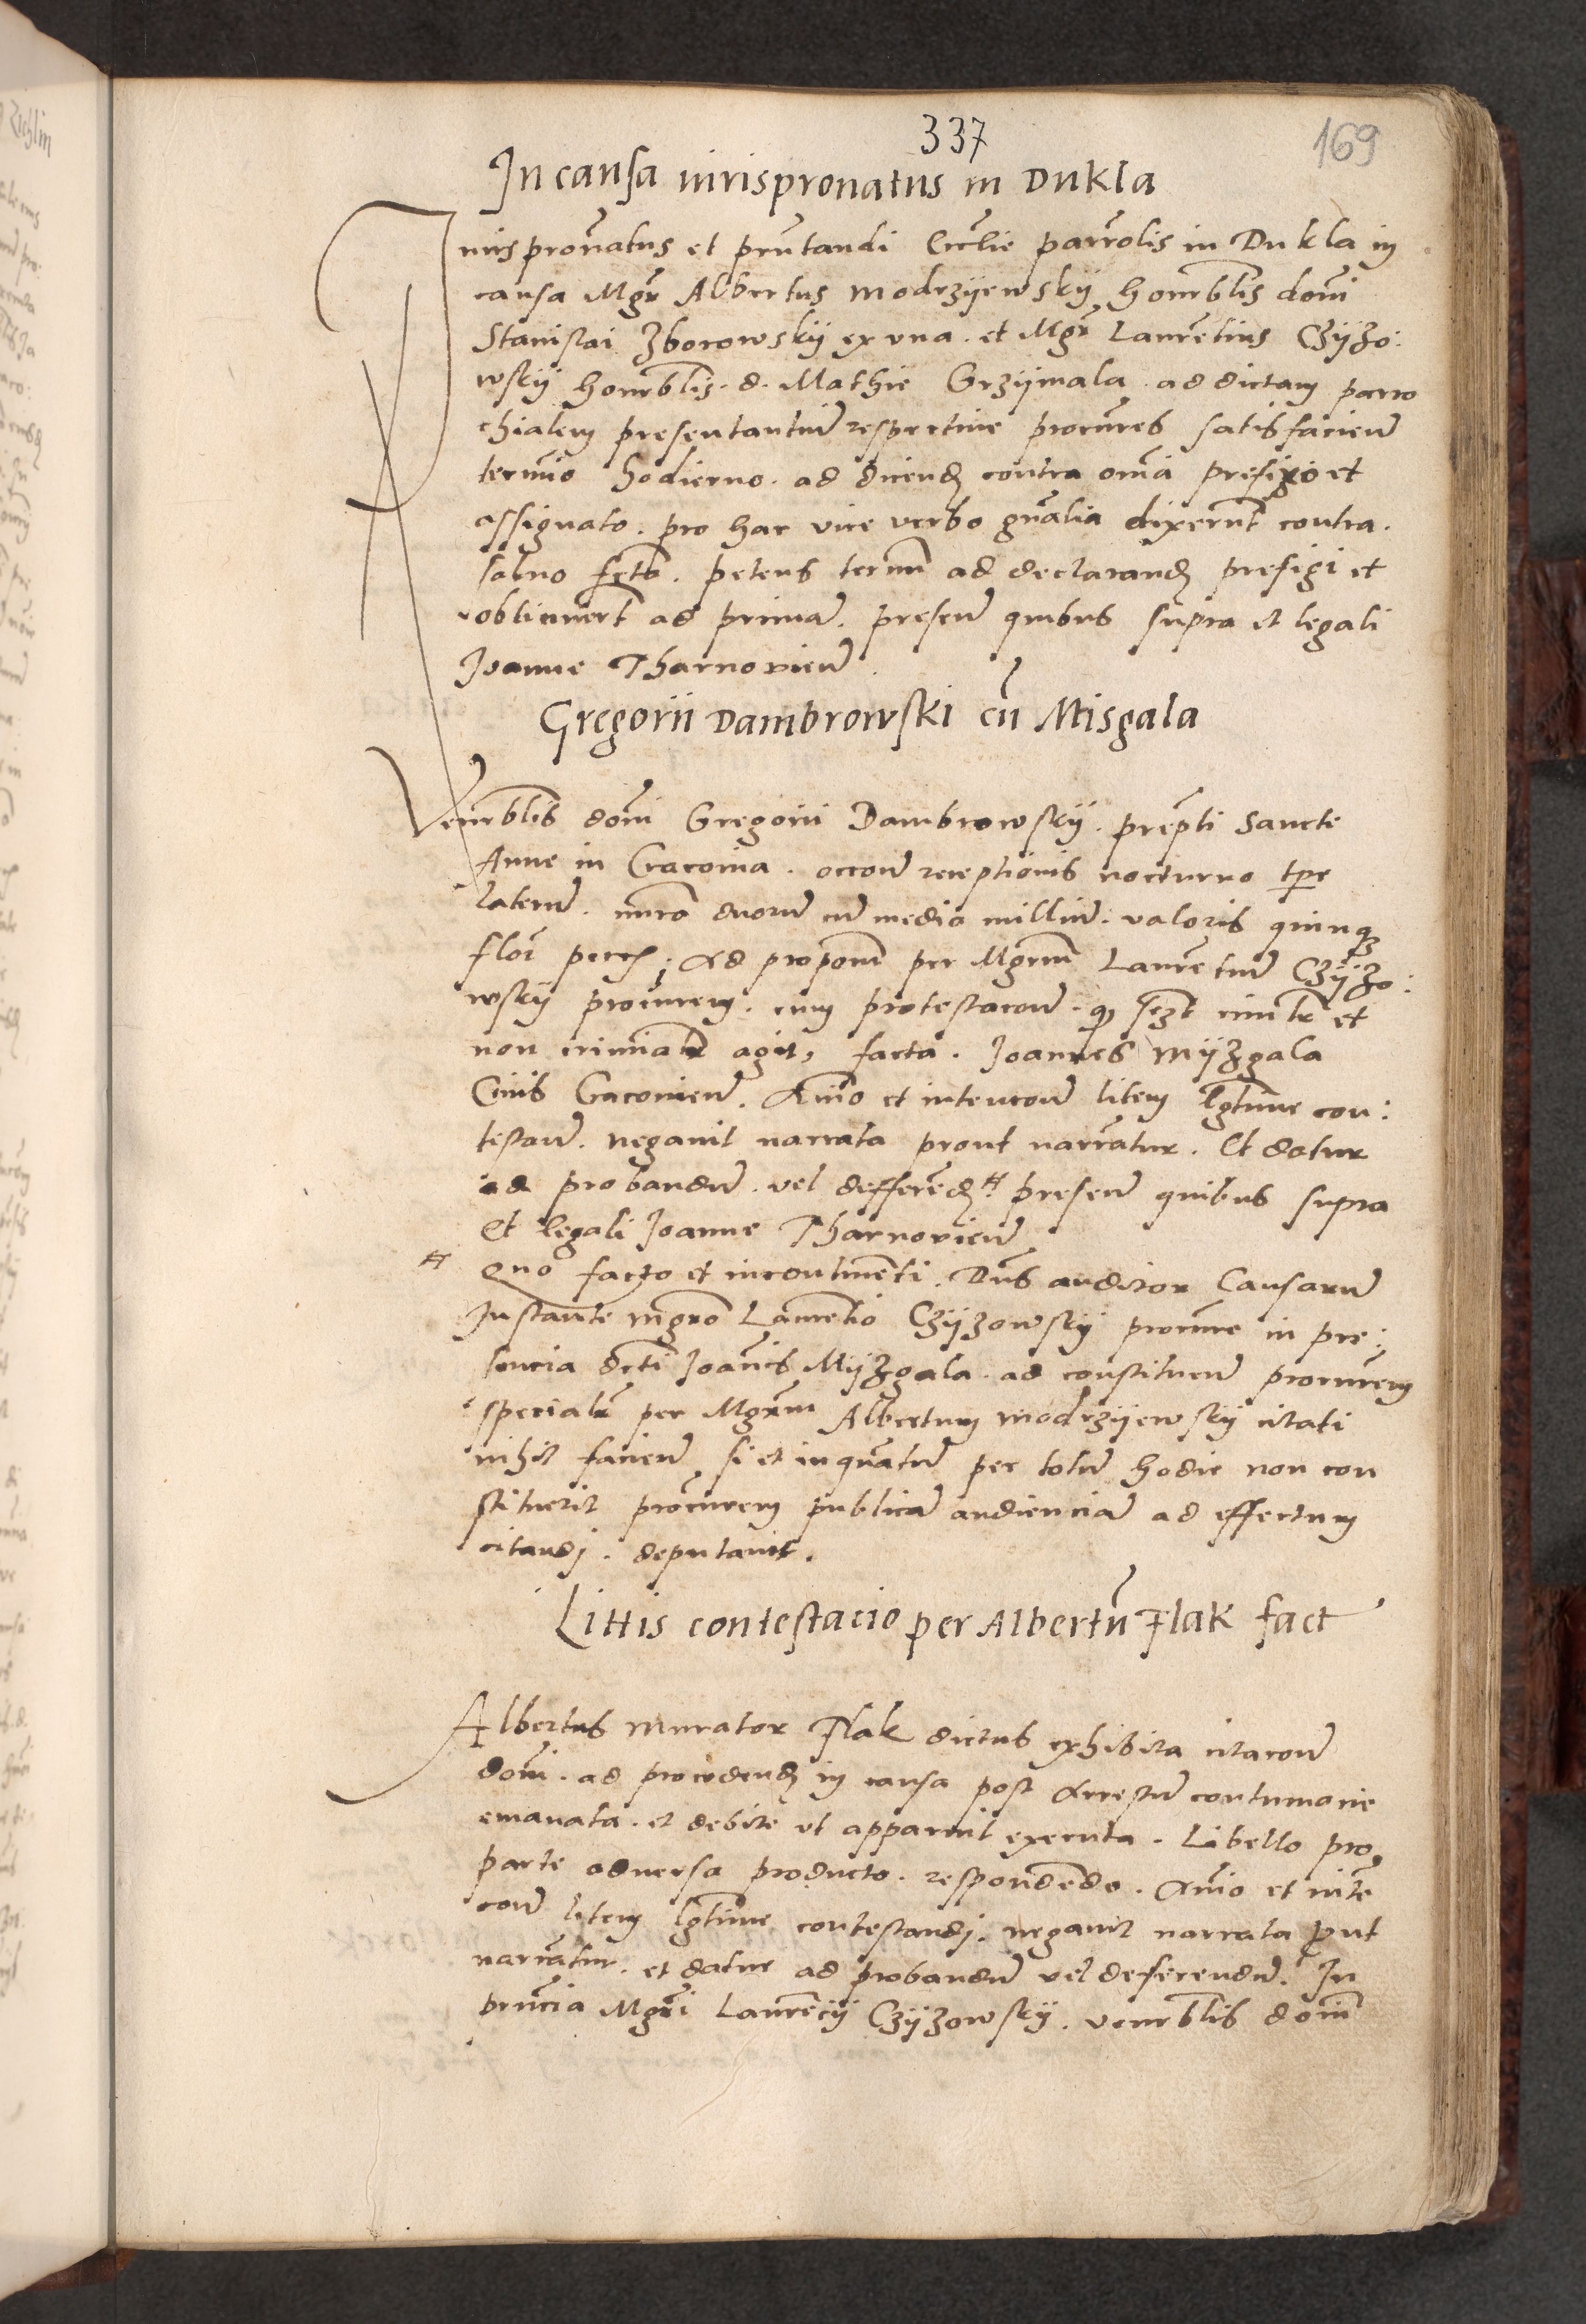 337
169
In causa iurispronatus in Dukla
Juris pronatus et prntandi Ecclie parrolis in Dukla in
causa Mgr Albertus Modrzyewsky honrblis domi
Stanislai Zborowsky ex vna. et Mgr Laurentius Czyzo:
wsky honrblis. d. Mathie Grzymala. ad dictam parro
chialem presentantium respective procures satisfacien
termino hodierno. ad dicend contra omia prefixo et
assignato. pro hac vice verbo gnalia dixerunt contra.
saluo scto. petens termn ad declarand prefigi et
obtinuert ad primam. presen quibus supra et legali
Joanne Tharnovien.
Gregorii Dambrowski cu Misgala
Venrblis domi Gregorii Dambrowsky. prepti Sancte
Anne in Cracovia. occon receptionis nocturno tpe
laterum. nuro duorum cum medio millium. valoris quinque
flor peccs; Ad propom per Mgrum Laurentium Czyzo:
wsky procurem. cum protestacon. q sczt civilr et
non criminalr agit, facta. Joannes Myzgala
Civis Cracovien. Animo et intencon litem lgtime con:
testan. negavit narrata prout narratur. Et datur
ad probandum. vel defferend # presen quibus supra
et legali Joanne Tharnovien
# Quo facto et incontinenti. Dns auditor Causarum
Instante mgro Laurentio Czyzowsky procure in pre:
sencia dcti Joannis Myzgala. ad constituen procurem
specialr per Mgrum Albertum Modrzyewsky citati
nihil facien si et inquantum per totum hodie non con
stituerit procurem publicam audienciam ad effectum
citandi. deputavit.
Littis contestacio per Albertu Flak fact
Albertus murator Flak dictus exhibita citacon
domi. ad procedend in causa post Arrestum contumacie
emanata. et debite ut apparuit executa. Libello pro
parte adversa producto. respondendo. Animo et inten
con litem lgtime contestandi. negavit narrata put
narratur. et datur ad probandum vel deferendum. In
prncia Mgri Laurencij Czyzowsky. venrblis domi